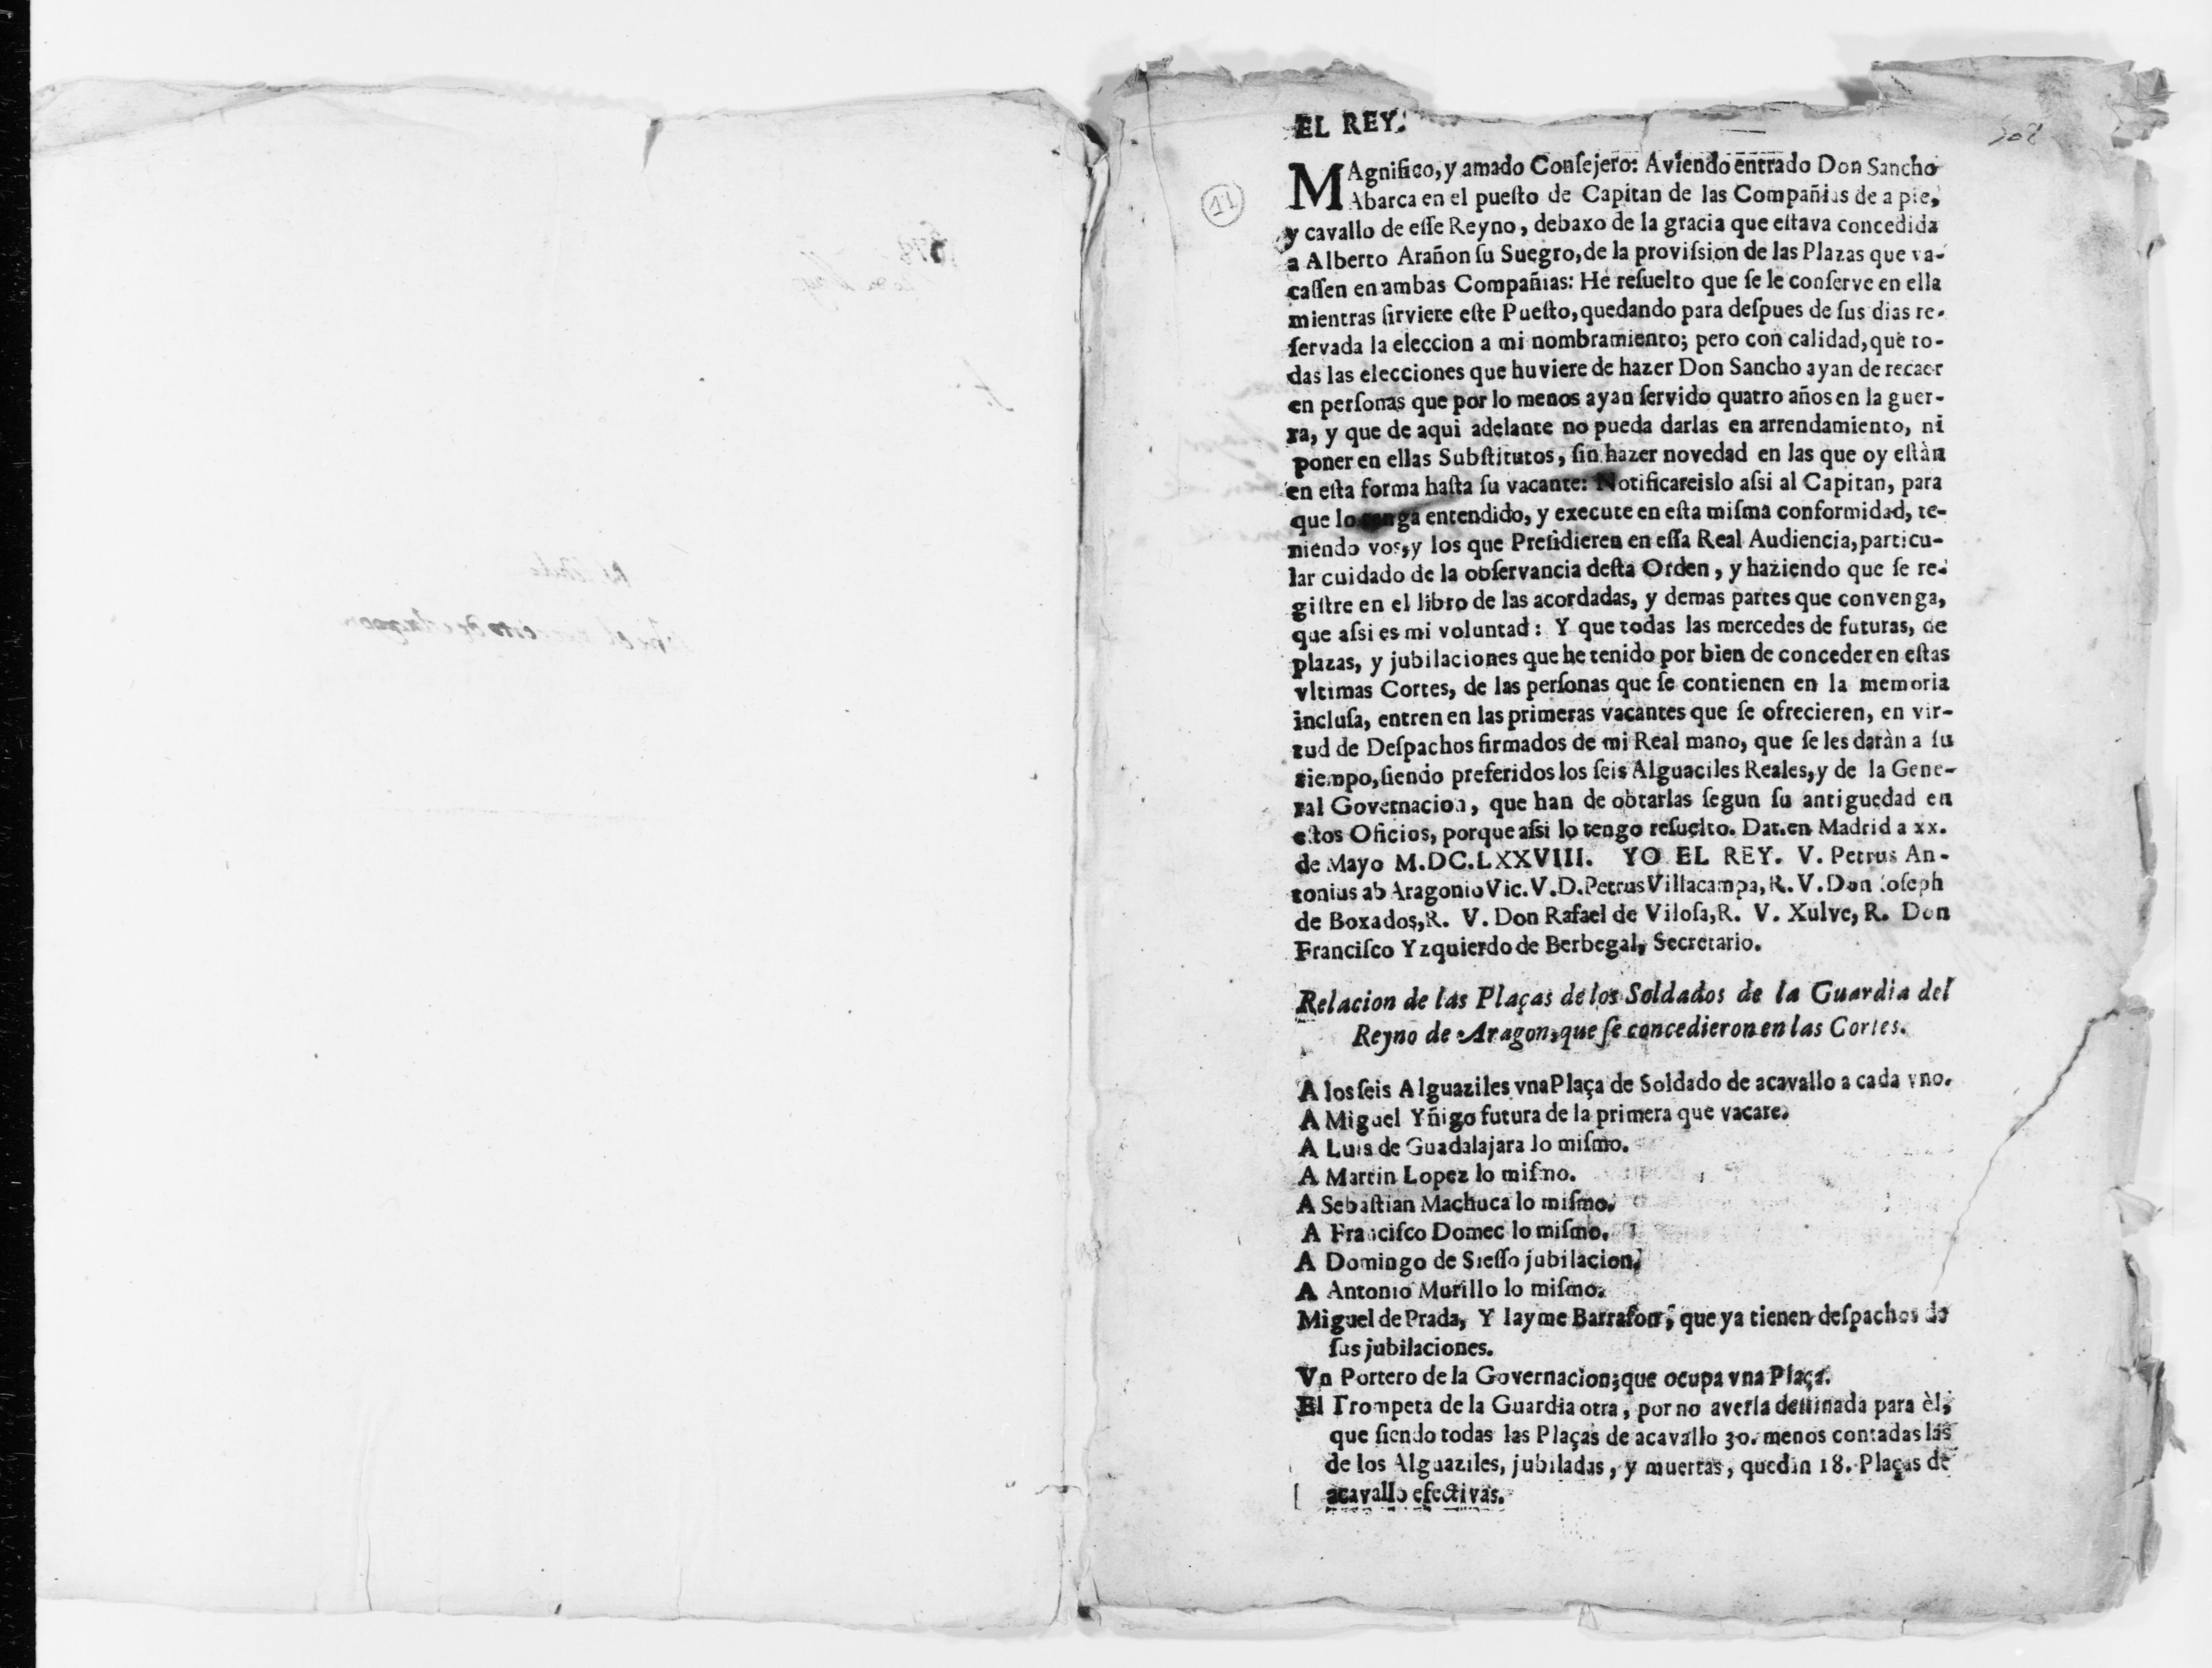 EL REY.
308
11
MAgnifico, y amado Conſejero: Aviendo entrado Don Sancho
Abarca en el pueſto de Capitan de las Compañias de a pie,
y cavallo de eſſe Reyno, debaxo de la gracia que eſtava concedida
a Alberto Arañon ſu Suegro, de la proviſsion de las Plazas que va-
caſſen en ambas Compañias: He reſuelto que ſe le conſerve en ella
mientras ſirviere eſte Pueſto, quedando para deſpues de ſus dias re-
ſervada la eleccion a mi nombramiento; pero con calidad, que to-
das las elecciones que huviere de hazer Don Sancho ayan de recaer
en perſonas que por lo menos ayan ſervido quatro años en la guer-
ra, y que de aqui adelante no pueda darlas en arrendamiento, ni
poner en ellas Subſtitutos, ſin hazer novedad en las que oy eſtàn
en eſta forma haſta ſu vacante: Notificareislo aſsi al Capitan, para
que lo tenga entendido, y execute en eſta miſma conformidad, te-
niendo vos, y los que Preſidieren en eſſa Real Audiencia, particu-
lar cuidado de la obſervancia deſta Orden, y haziendo que ſe re-
giſtre en el libro de las acordadas, y demas partes que convenga,
que aſsi es mi voluntad: Y que todas las mercedes de futuras, de
plazas, y jubilaciones que he tenido por bien de conceder en eſtas
vltimas Cortes, de las perſonas que ſe contienen en la memoria
incluſa, entren en las primeras vacantes que ſe ofrecieren, en vir-
tud de Deſpachos firmados de mi Real mano, que ſe les daràn a ſu
tiempo, ſiendo preferidos los ſeis Alguaciles Reales, y de la Gene-
ral Governacion, que han de obtarlas ſegun ſu antiguedad en
eſtos Oficios, porque aſsi lo tengo reſuelto. Dat. en Madrid a xx.
de Mayo M.DC.LXXVIII. YO EL REY. V. Petrus An-
tonius ab Aragonio Vic. V. D. Petrus Villacampa, R. V. Don Ioſeph
de Boxados, R. V. Don Rafael de Viloſa, R. V. Xulve, R. Don
Franciſco Yzquierdo de Berbegal, Secretario.
Relacion de las Plaças de los Soldados de la Guardia del
Reyno de Aragon, que ſe concedieron en las Cortes.
A los ſeis Alguaziles vna Plaça de Soldado de acavallo a cada vno.
A Miguel Yñigo futura de la primera que vacare.
A Luis de Guadalajara lo miſmo.
A Martin Lopez lo miſmo.
A Sebaſtian Machuca lo miſmo.
A Franciſco Domec lo miſmo.
A Domingo de Sieſſo jubilacion.
A Antonio Murillo lo miſmo.
Miguel de Prada, Y Iayme Barrafon, que ya tienen deſpachos de
ſus jubilaciones.
Vn Portero de la Governacion, que ocupa vna Plaça.
El Trompeta de la Guardia otra, por no averla deſtinada para èl,
que ſiendo todas las Plaças de acavallo 30. menos contadas las
de los Alguaziles, jubiladas, y muertas, quedan 18. Plaças de
acavallo efectivas.